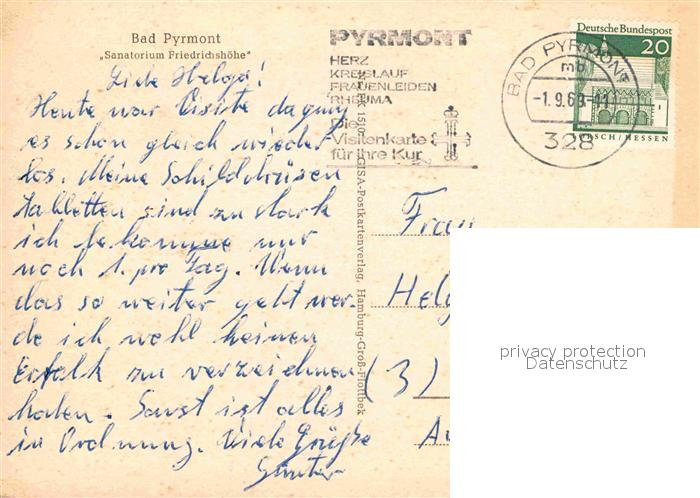 Bad Pyrmont
„Sanatorium Friedrichshöhe"
Liebe Helga!
Heute war Visite da ging
es schon gleich wieder
los. Meine Schilddrüsen
tabletten sind zu stark
ich bekomme nur
noch 1. pro Tag. Wenn
das so weiter geht wer-
de ich wohl keinen
Erfolk zu verzeichnen
haben. Sonst ist alles
in Ordnung. Viele Grüße
Günter
GISA-Postkartenverlag, Hamburg-Groß-Flottbek
PYRMONT
HERZ
KREISLAUF
FRAUENLEIDEN
RHEUMA
Die
Visitenkarte
für Ihre Kur
BAD PYRMONT
mb
-1.9.69-11
328
Deutsche Bundespost
20
LORSCH/HESSEN
Frau
Helg
(3)
privacy protection
Datenschutz